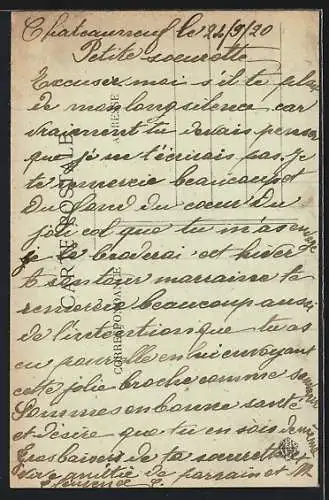 Chateauneuf le 22/9/20
Petite soeurette
Excuser moi s'il te plait
de mon long silence car
vraiment tu devais penser
que je ne t'écrirais pas. Je
te remercie beaucoup et
du fond du coeur du
joli col que tu m'as envoyé
je le broderai cet hiver
marraine te
remercie beaucoup aussi
de l'intention que tu as
eu pour elle en lui envoyant
cette jolie broche comme souvenir
Sommes en bonne santé
et désire que tu en sois de même
Gros baisers de ta soeurette
amitié de parrain et M
CARTE POSTALE
CORRESPONDANCE
ADRESSE